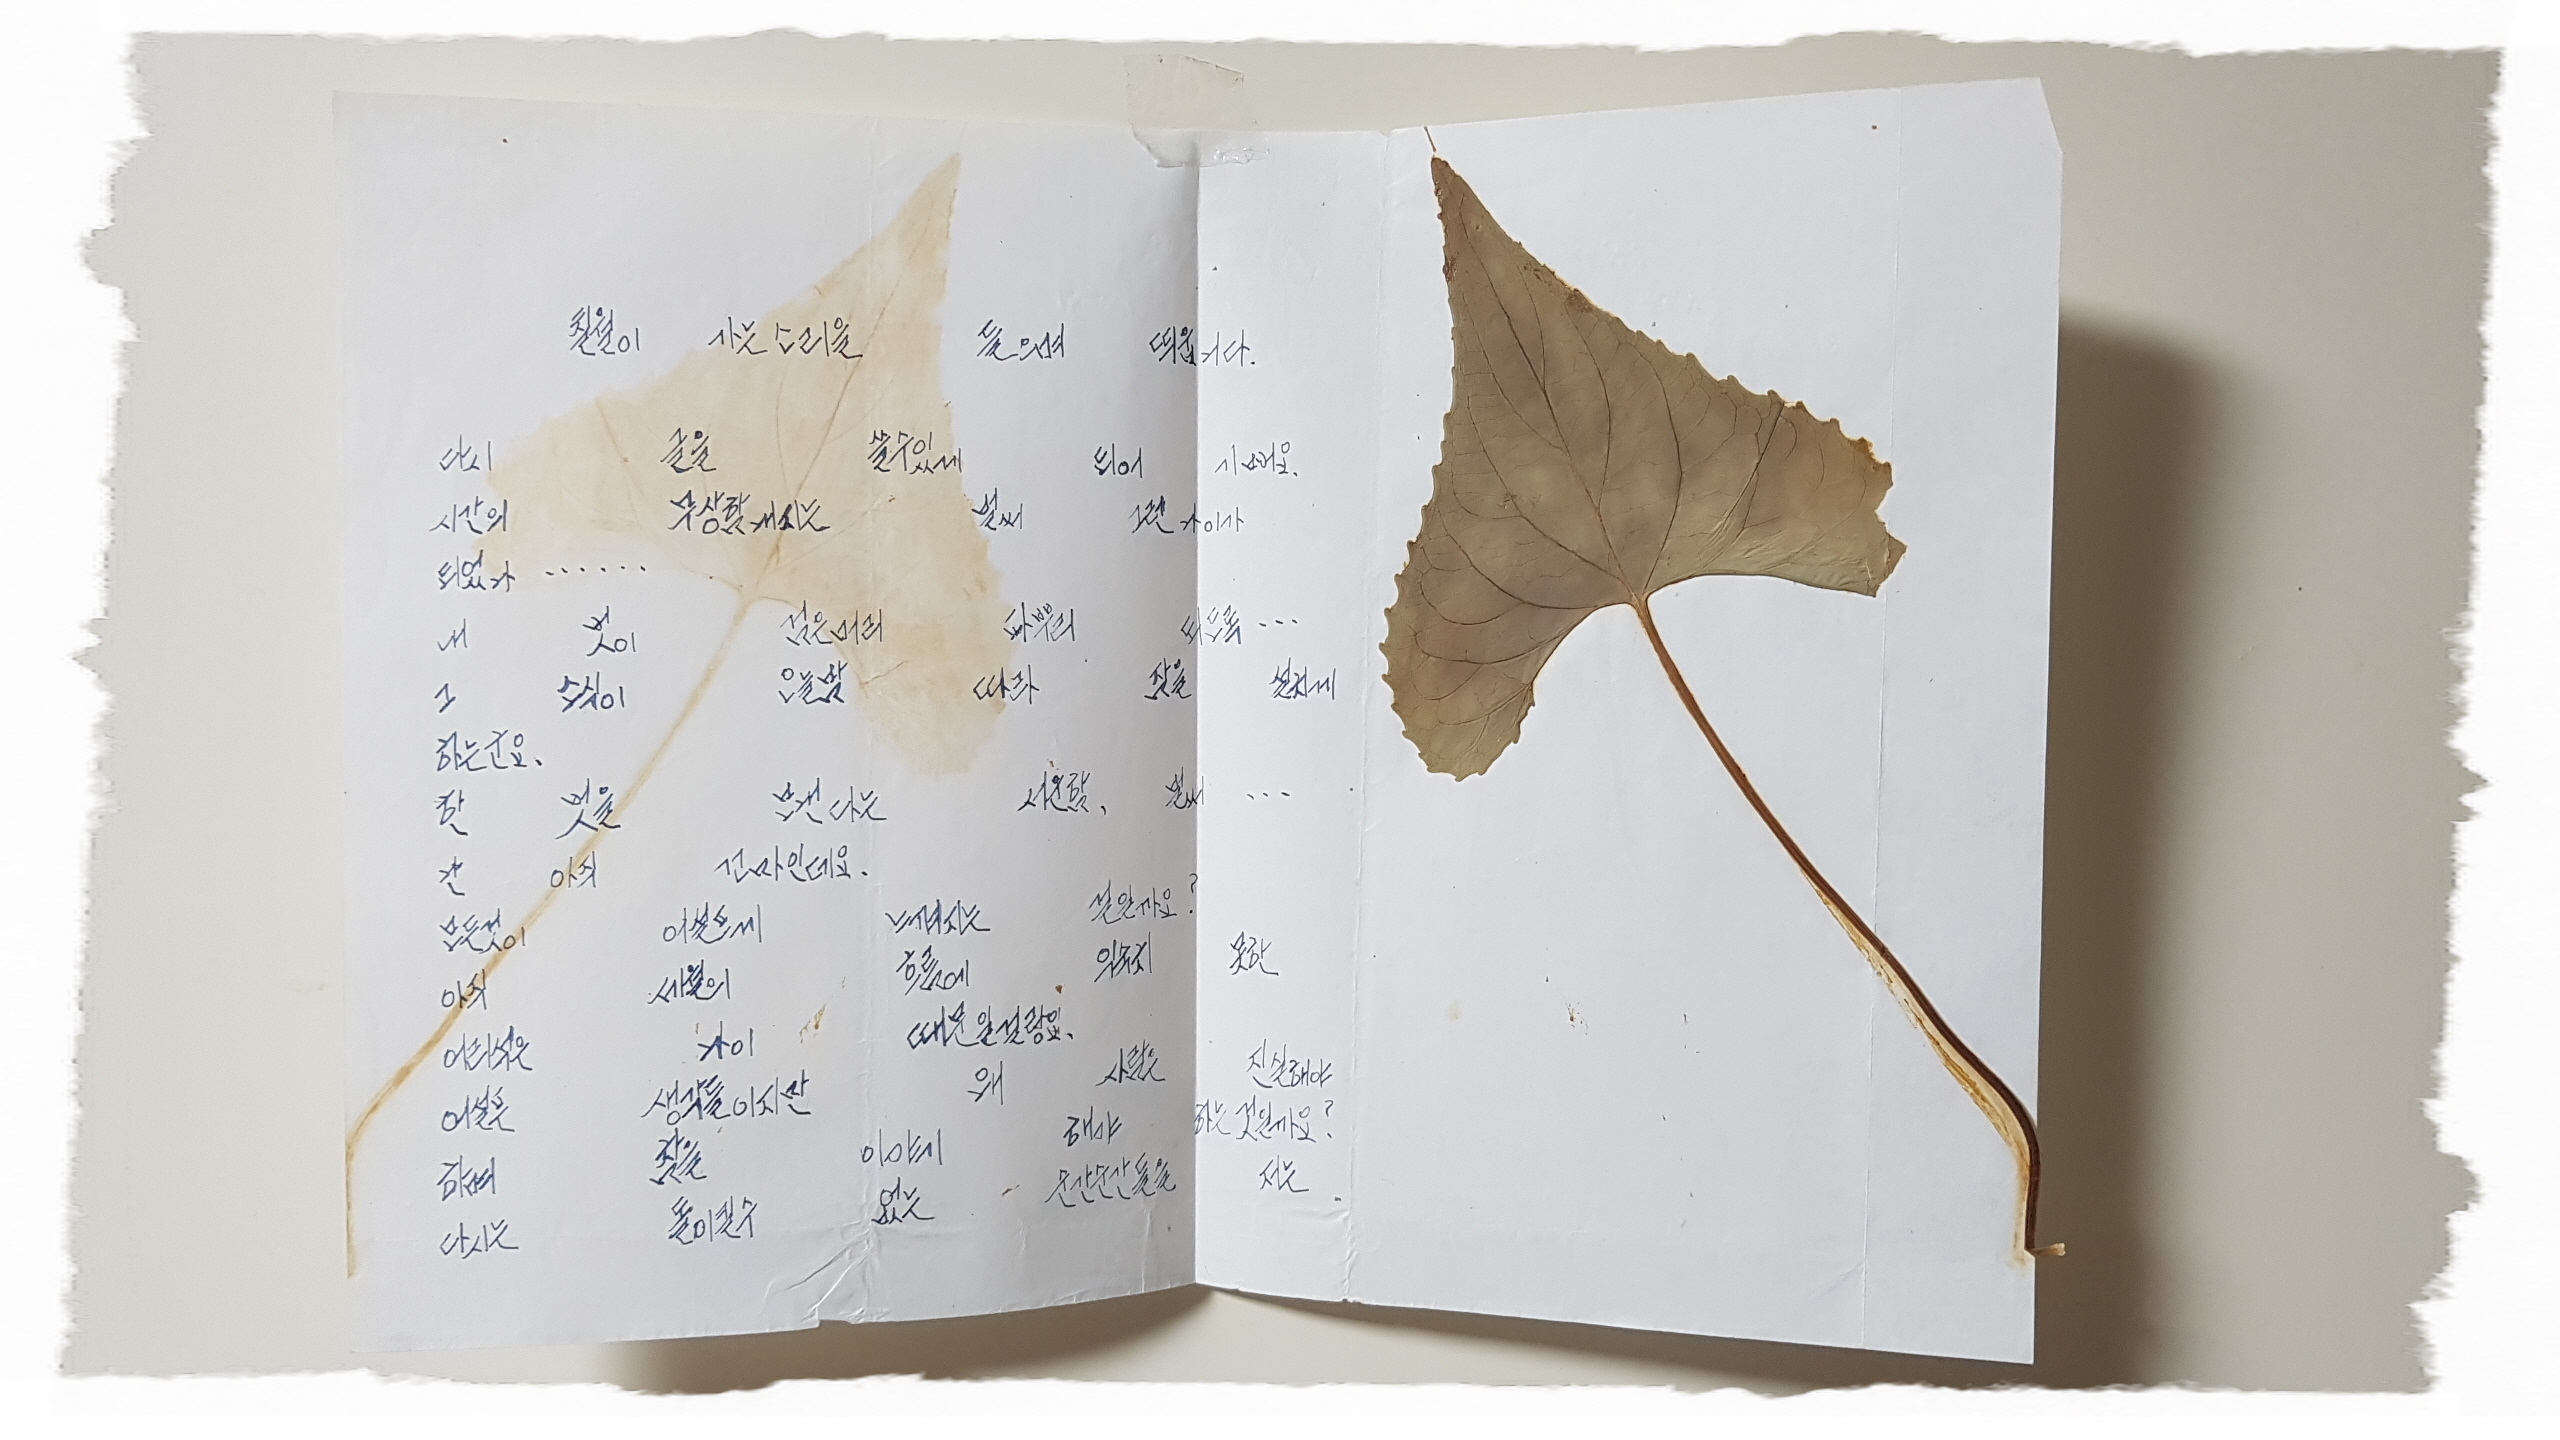 칠월이 가는 소리을 들으며 띄웁니다.
다시 글을 쓸수있게 되어 기뻐요.
시간의 무상함 벌써 그런 나이가
되었나 ......
내 벗이 검은머리 파뿌리 되도록 ...
그 소식이 오늘밤 따라 잠을 설치게
하는군요.
한 벗을 보낸다는 서운함, 벌써 ...
난 아직 꼬마인데요.
모든것이 어설프게 느껴지는 걸일까요?
아직 세월의 흐름에 익숙지 못한
어리석은 나이 때문일걸랑요.
어설픈 생각들이지만 왜 사람은 진실해야
하며 참을 이야기 해야 하는것일까요?
다시는 돌이킬수 없는 순간순간들을 저는